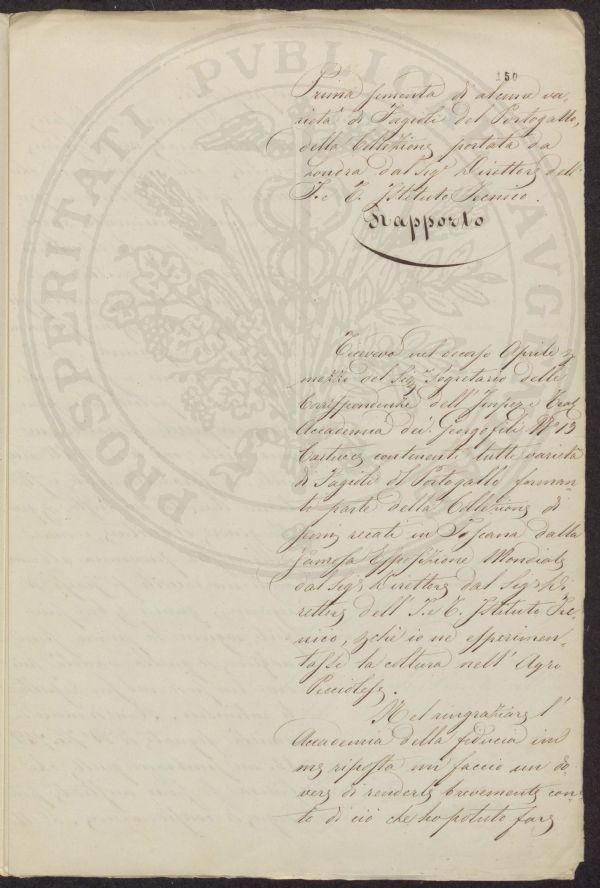 150
Prima sementa di alcune va-
rietà di Fagioli del Portogallo,
della Collezione portata da
Londra dal Sigr Direttore dell'
I. e R. Istituto Tecnico.
Rapporto
Riceveva nel decorso Aprile p
mezzo del Sigr Segretario delle
Corrispondenze dell' Imp. e Real
Accademia dei Georgofili No 13
Cartucce contenenti tutte varietà
di Fagioli del Portogallo forman-
ti parte della Collezione di
semi recati in Toscana dalla
famosa Esposizione Mondiale
dal Sigr Direttore dal Sigr Di
rettore dell' I. e R. Istituto Tec
nico, pchè io ne esperimen-
tassi la coltura nell' Agro
Pecciolese.
Nel ringraziare l'
Accademia della fiducia in
me riposta mi faccio un do-
vere di renderle brevemente con-
to di ciò che ho potuto fare
PROSPERITATI PVBLICAE AVGE